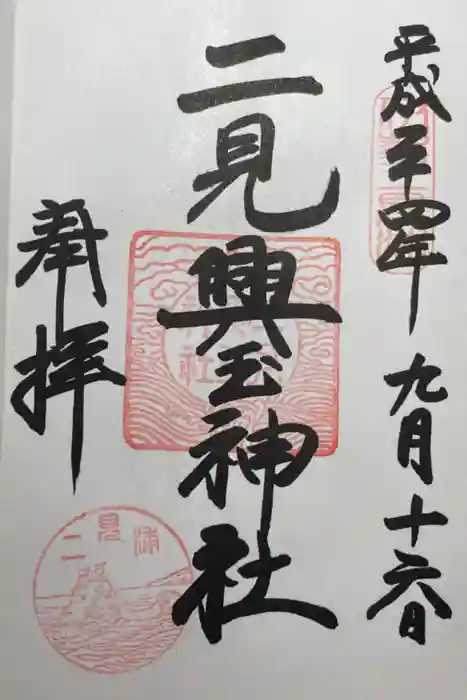 平成二十四年九月十六日
二見興玉神社
奉拝
二見浦